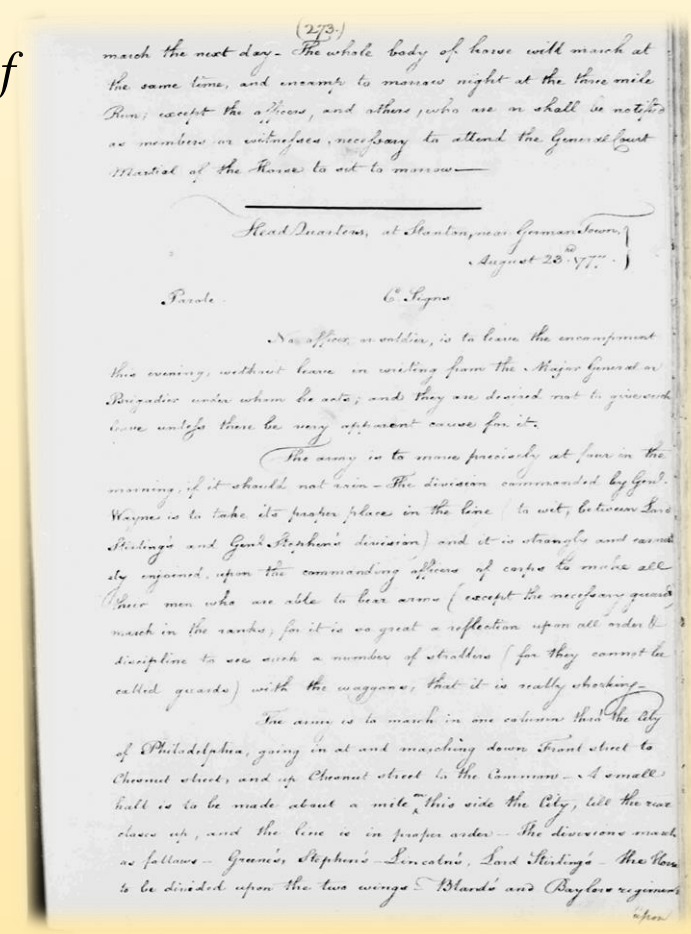 f
(273.)
march the next day - The whole body of horse will march at
the same time, and encamp to morrow night at the three mile
Run; except the officers, and others, who are or shall be notified
as members or witnesses, necessary to attend the General Court
Martial of the Horse to sit to morrow—
Head Quarters, at Stanton, near German Town,
August 23rd 1777.
Parole. C. Signs
No officer or soldier, is to leave the encampment
this evening, without leave in writing from the Major General or
Brigadier under whom he acts; and they are desired not to give such
leave unless there be very apparent cause for it.
The army is to move precisely at four in the
morning, if it should not rain - The division commanded by Genl.
Wayne is to take its proper place in the line (to wit, between Lord
Stirling's and Genl Stephen's division) and it is strongly and earnest
ly enjoined, upon the commanding officers of corps to make all
their men who are able to bear arms (except the necessary guards)
march in the ranks; for it is so great a reflection upon all order &
discipline to see such a number of strollers (for they cannot be
called guards) with the waggons, that it is really shocking -
The army is to march in one column thro' the City
of Philadelphia, going in at and marching down Front street to
Chesnut street, and up Chesnut street to the Common - A small
halt is to be made about a mile on this side the City, till the rear
closes up, and the line is in proper order - The divisions march
as follows - Greene's, Stephen's - Lincoln's, Lord Stirling's - the Horse
to be divided upon the two wings - Bland's and Baylors regiments
upon